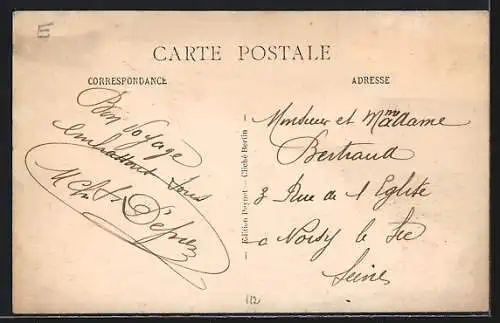 E
CARTE POSTALE
CORRESPONDANCE
ADRESSE
Bon Voyage
embrassons tous
M et A Défrez
Edition Poynet — Cliché Berlin
Monsieur et Madame
Bertraud
3 Rue de l Eglite
a Noisy le Sec
Seine
112